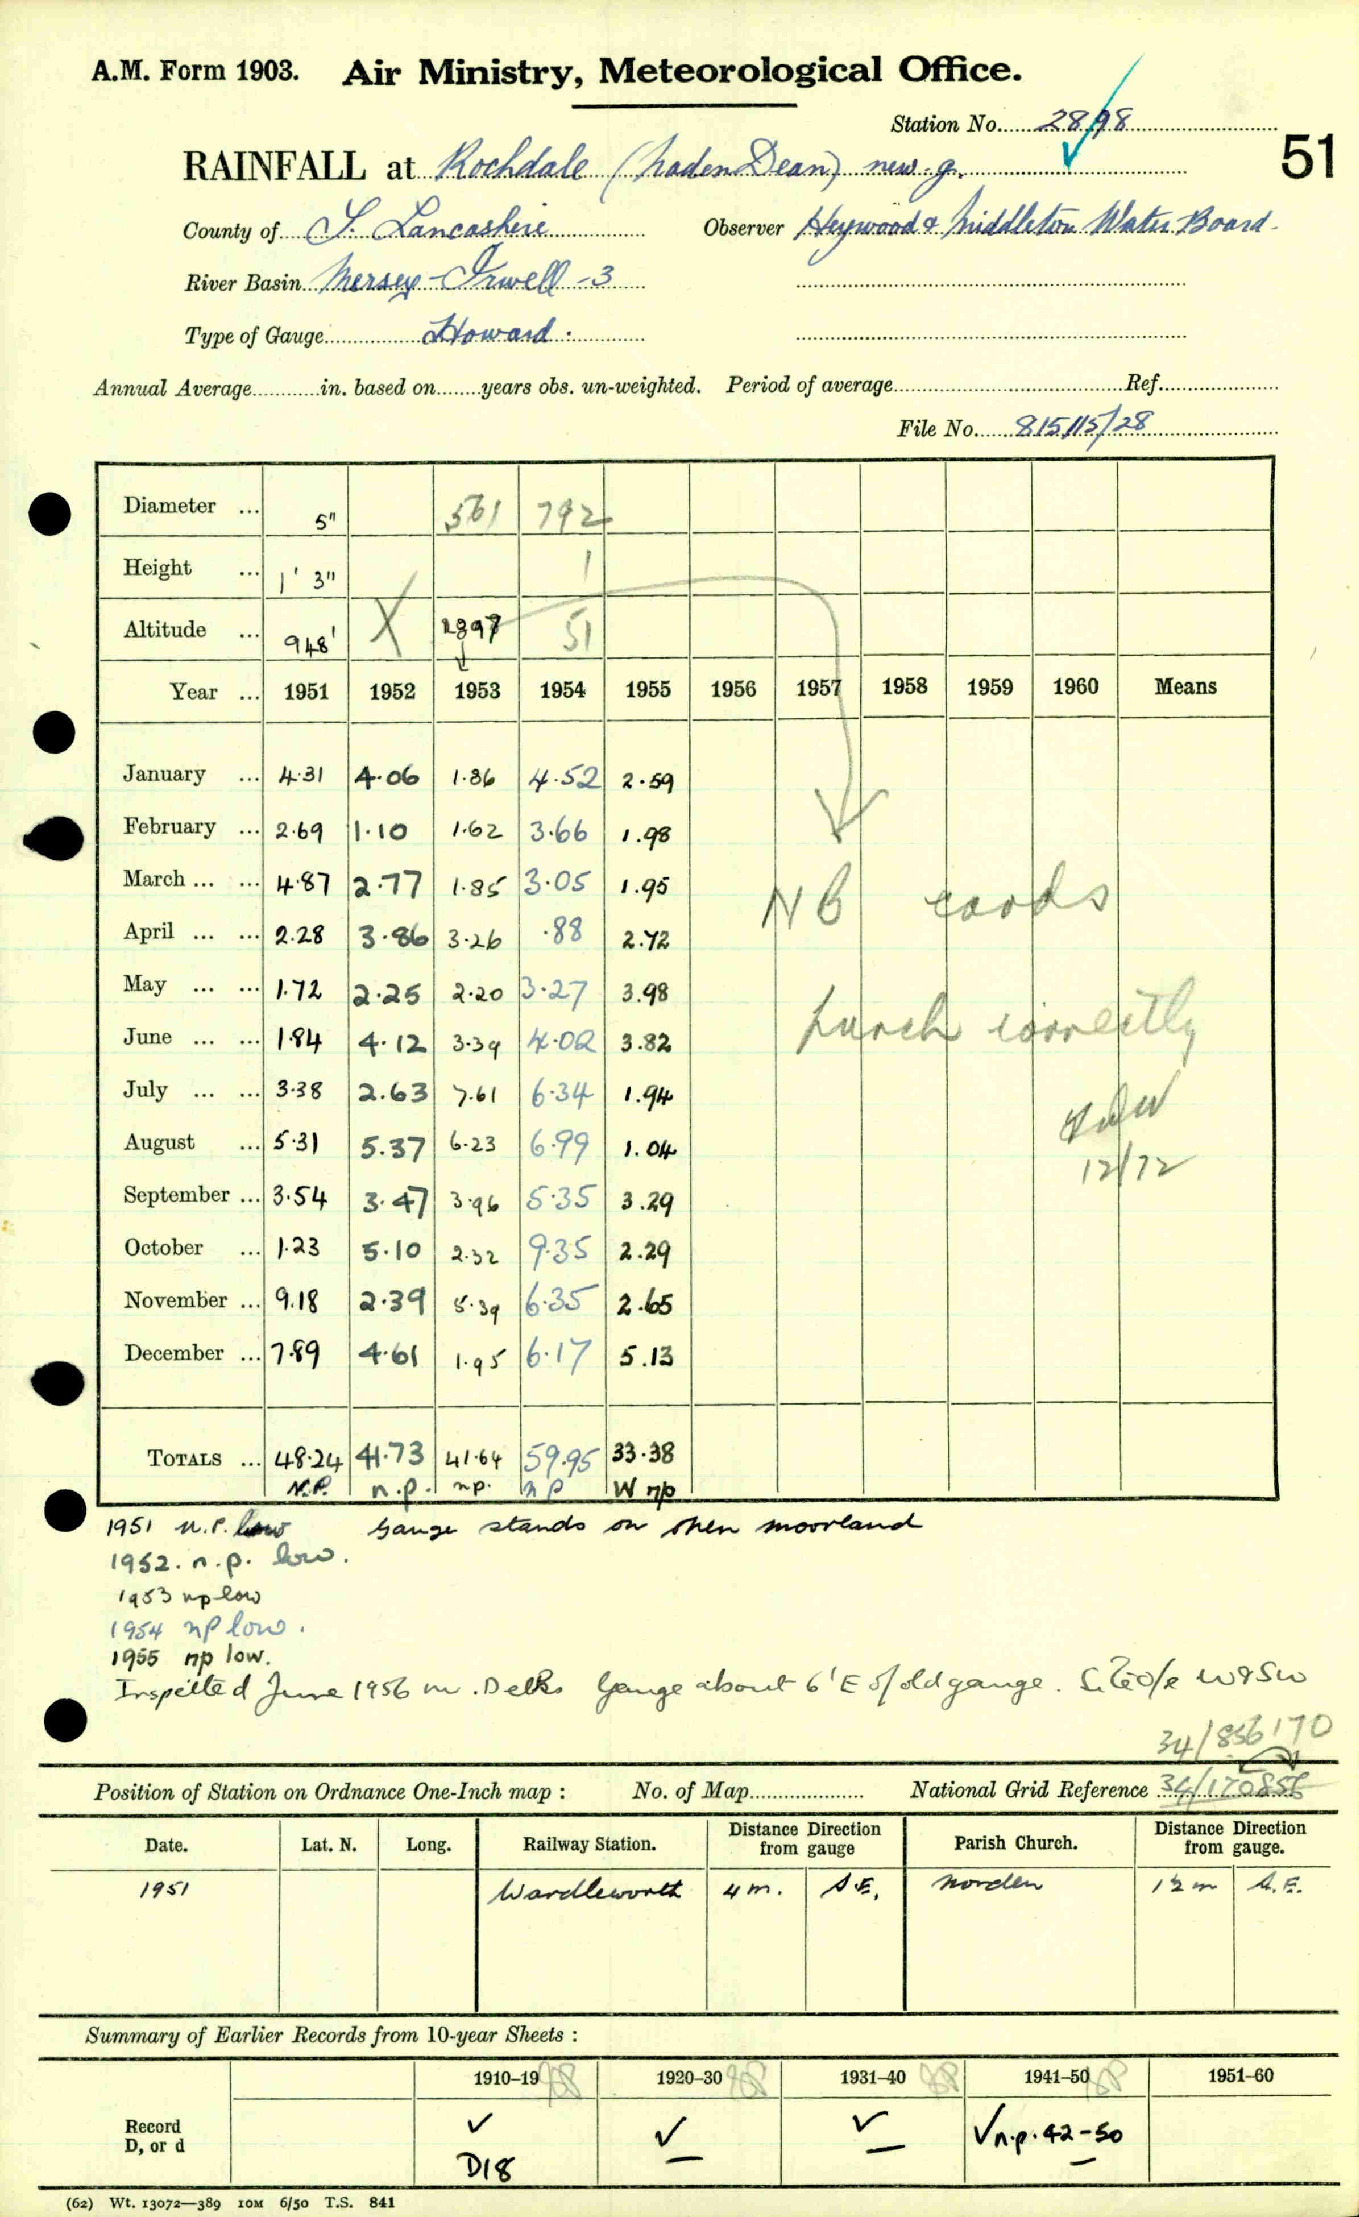 A.M. Form 1903. Air Ministry, Meteorological Office.
Station No. 2898
51
RAINFALL at Rochdale (Naden Dean) new g.
County of S. Lancashire Observer Heywood & Middleton Water Board.
River Basin Mersey-Irwell-3
Type of Gauge Howard.
Annual Average in. based on years obs. un-weighted. Period of average Ref.
File No. 815115/28
Diameter ... 5" 561 792
Height ... 1' 3" 1
Altitude ... 948' X 2897 51
Year ... 1951 1952 1953 1954 1955 1956 1957 1958 1959 1960 Means
January ... 4.31 4.06 1.86 4.52 2.59
February ... 2.69 1.10 1.62 3.66 1.98
March ... ... 4.87 2.77 1.85 3.05 1.95
NB cards
April ... ... 2.28 3.86 3.26 .88 2.72
May ... ... 1.72 2.25 2.20 3.27 3.98
June ... ... 1.84 4.12 3.39 4.02 3.82
punch correctly
July ... ... 3.38 2.63 7.61 6.34 1.94
August ... 5.31 5.37 6.23 6.99 1.04
12/72
September ... 3.54 3.47 3.96 5.35 3.29
October ... 1.23 5.10 2.32 9.35 2.29
November ... 9.18 2.39 5.39 6.35 2.65
December ... 7.89 4.61 1.95 6.17 5.13
TOTALS ... 48.24 41.73 41.64 59.95 33.38
N.P. n.p. np. n p W np
1951 n.P. low Gauge stands on open moorland
1952. n.p. low.
1953 np low
1954 np low.
1955 np low.
Inspected June 1956 Gauge about 6' E of old gauge. Site o/e W & SW
34/856170
Position of Station on Ordnance One-Inch map : No. of Map National Grid Reference 34/170856
Date. Lat. N. Long. Railway Station. Distance from Direction gauge Parish Church. Distance from Direction gauge.
1951 Wardleworth 4 m. S.E. Norden 1½ m S.E.
Summary of Earlier Records from 10-year Sheets :
1910-19 98 1920-30 98 1931-40 98 1941-50 98 1951-60
Record D, or d ✓ D18 ✓ ✓ ✓ n.p. 42-50
(62) Wt. 13072—389 10M 6/50 T.S. 841